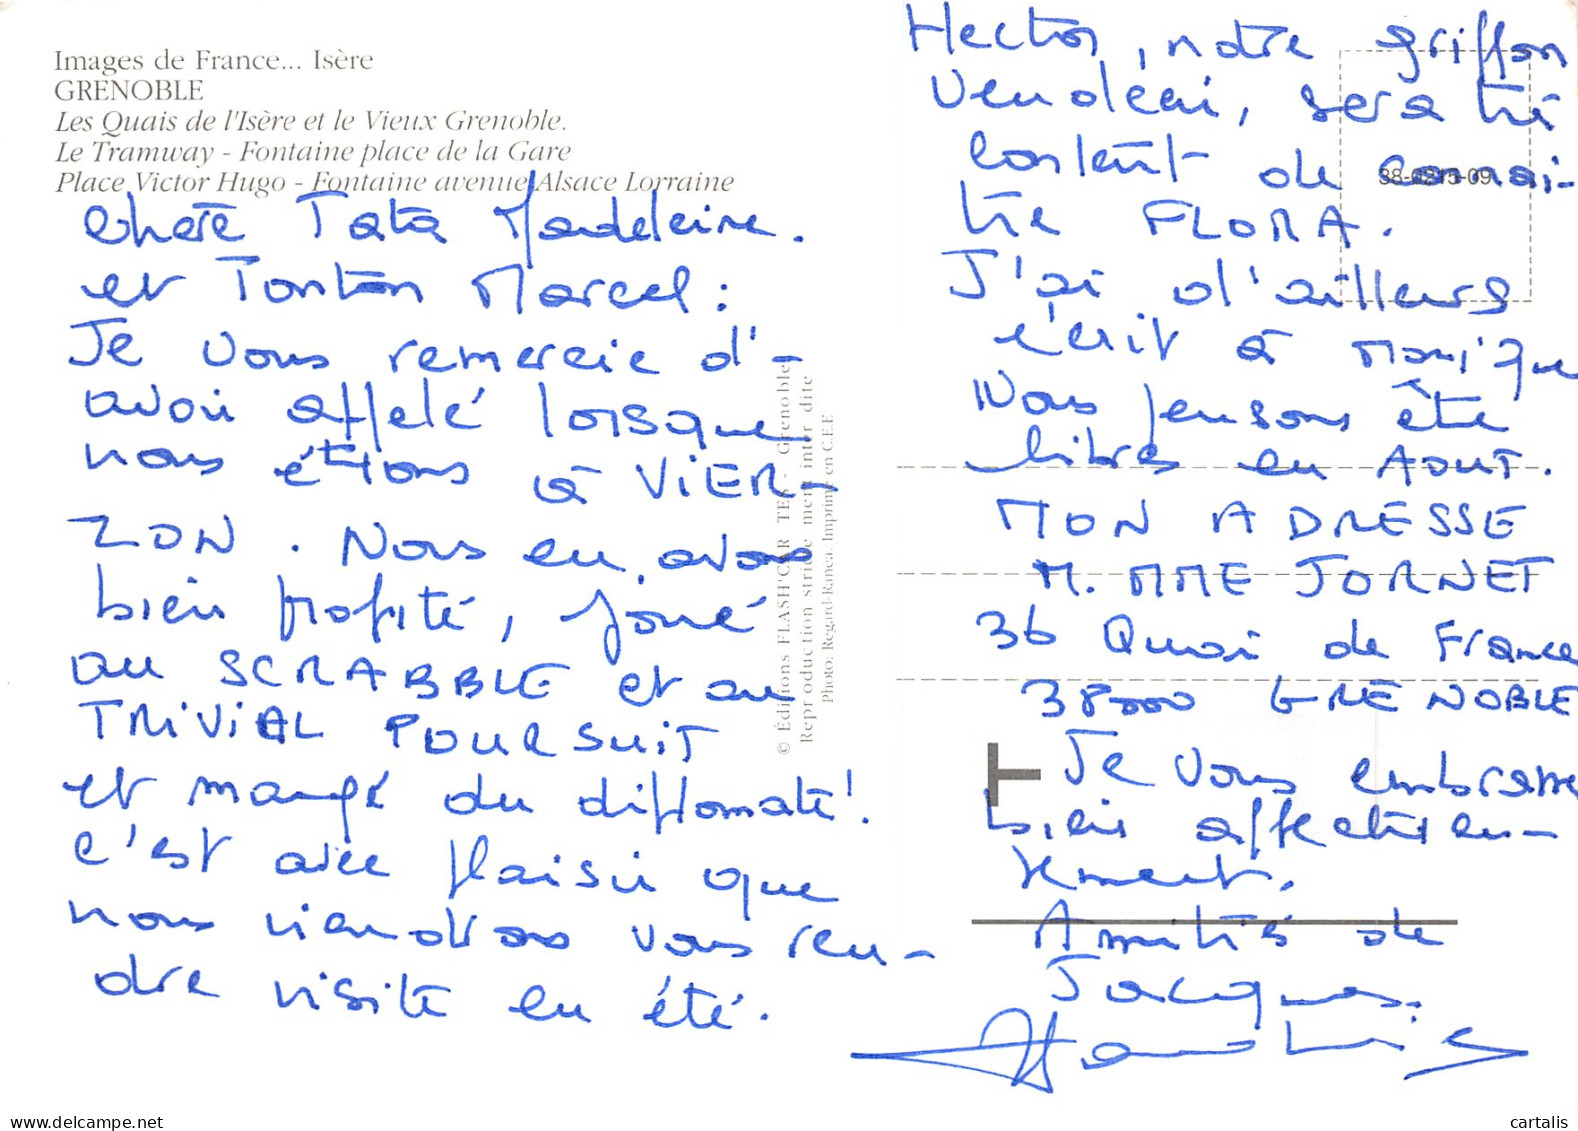 Images de France... Isère
GRENOBLE
Les Quais de l'Isère et le Vieux Grenoble.
Le Tramway - Fontaine place de la Gare
Place Victor Hugo - Fontaine avenue Alsace Lorraine
chère Tata Madeleine.
et Tonton Marcel :
Je vous remercie d'-
avoir appelé lorsque
nous étions à VIER-
ZON. Nous en avons
bien profité, joué
au SCRABBLE et au
TRIVIAL POURSUIT
et mangé du diplomate !
c'est avec plaisir que
nous viendrons vous ren-
dre visite en été.
© Éditions FLASH'CAR TES - Grenoble
Repr oduction stricte ment inter dite
Photo: Regard-Ranéa. Imprimé en C.E.E
Hector, notre griffon
Vendéen, sera très
content de connai-
38-0215-09
tre FLORA.
J'ai d'ailleurs
écrit à Monique
Nous pensons être
libres en AOUT.
MON ADRESSE
M. MME JORNET
36 Quai de France
38000 GRENOBLE
Je vous embrasse
bien affectueu-
sement.
Amitiés de
Jacques.
cartalis